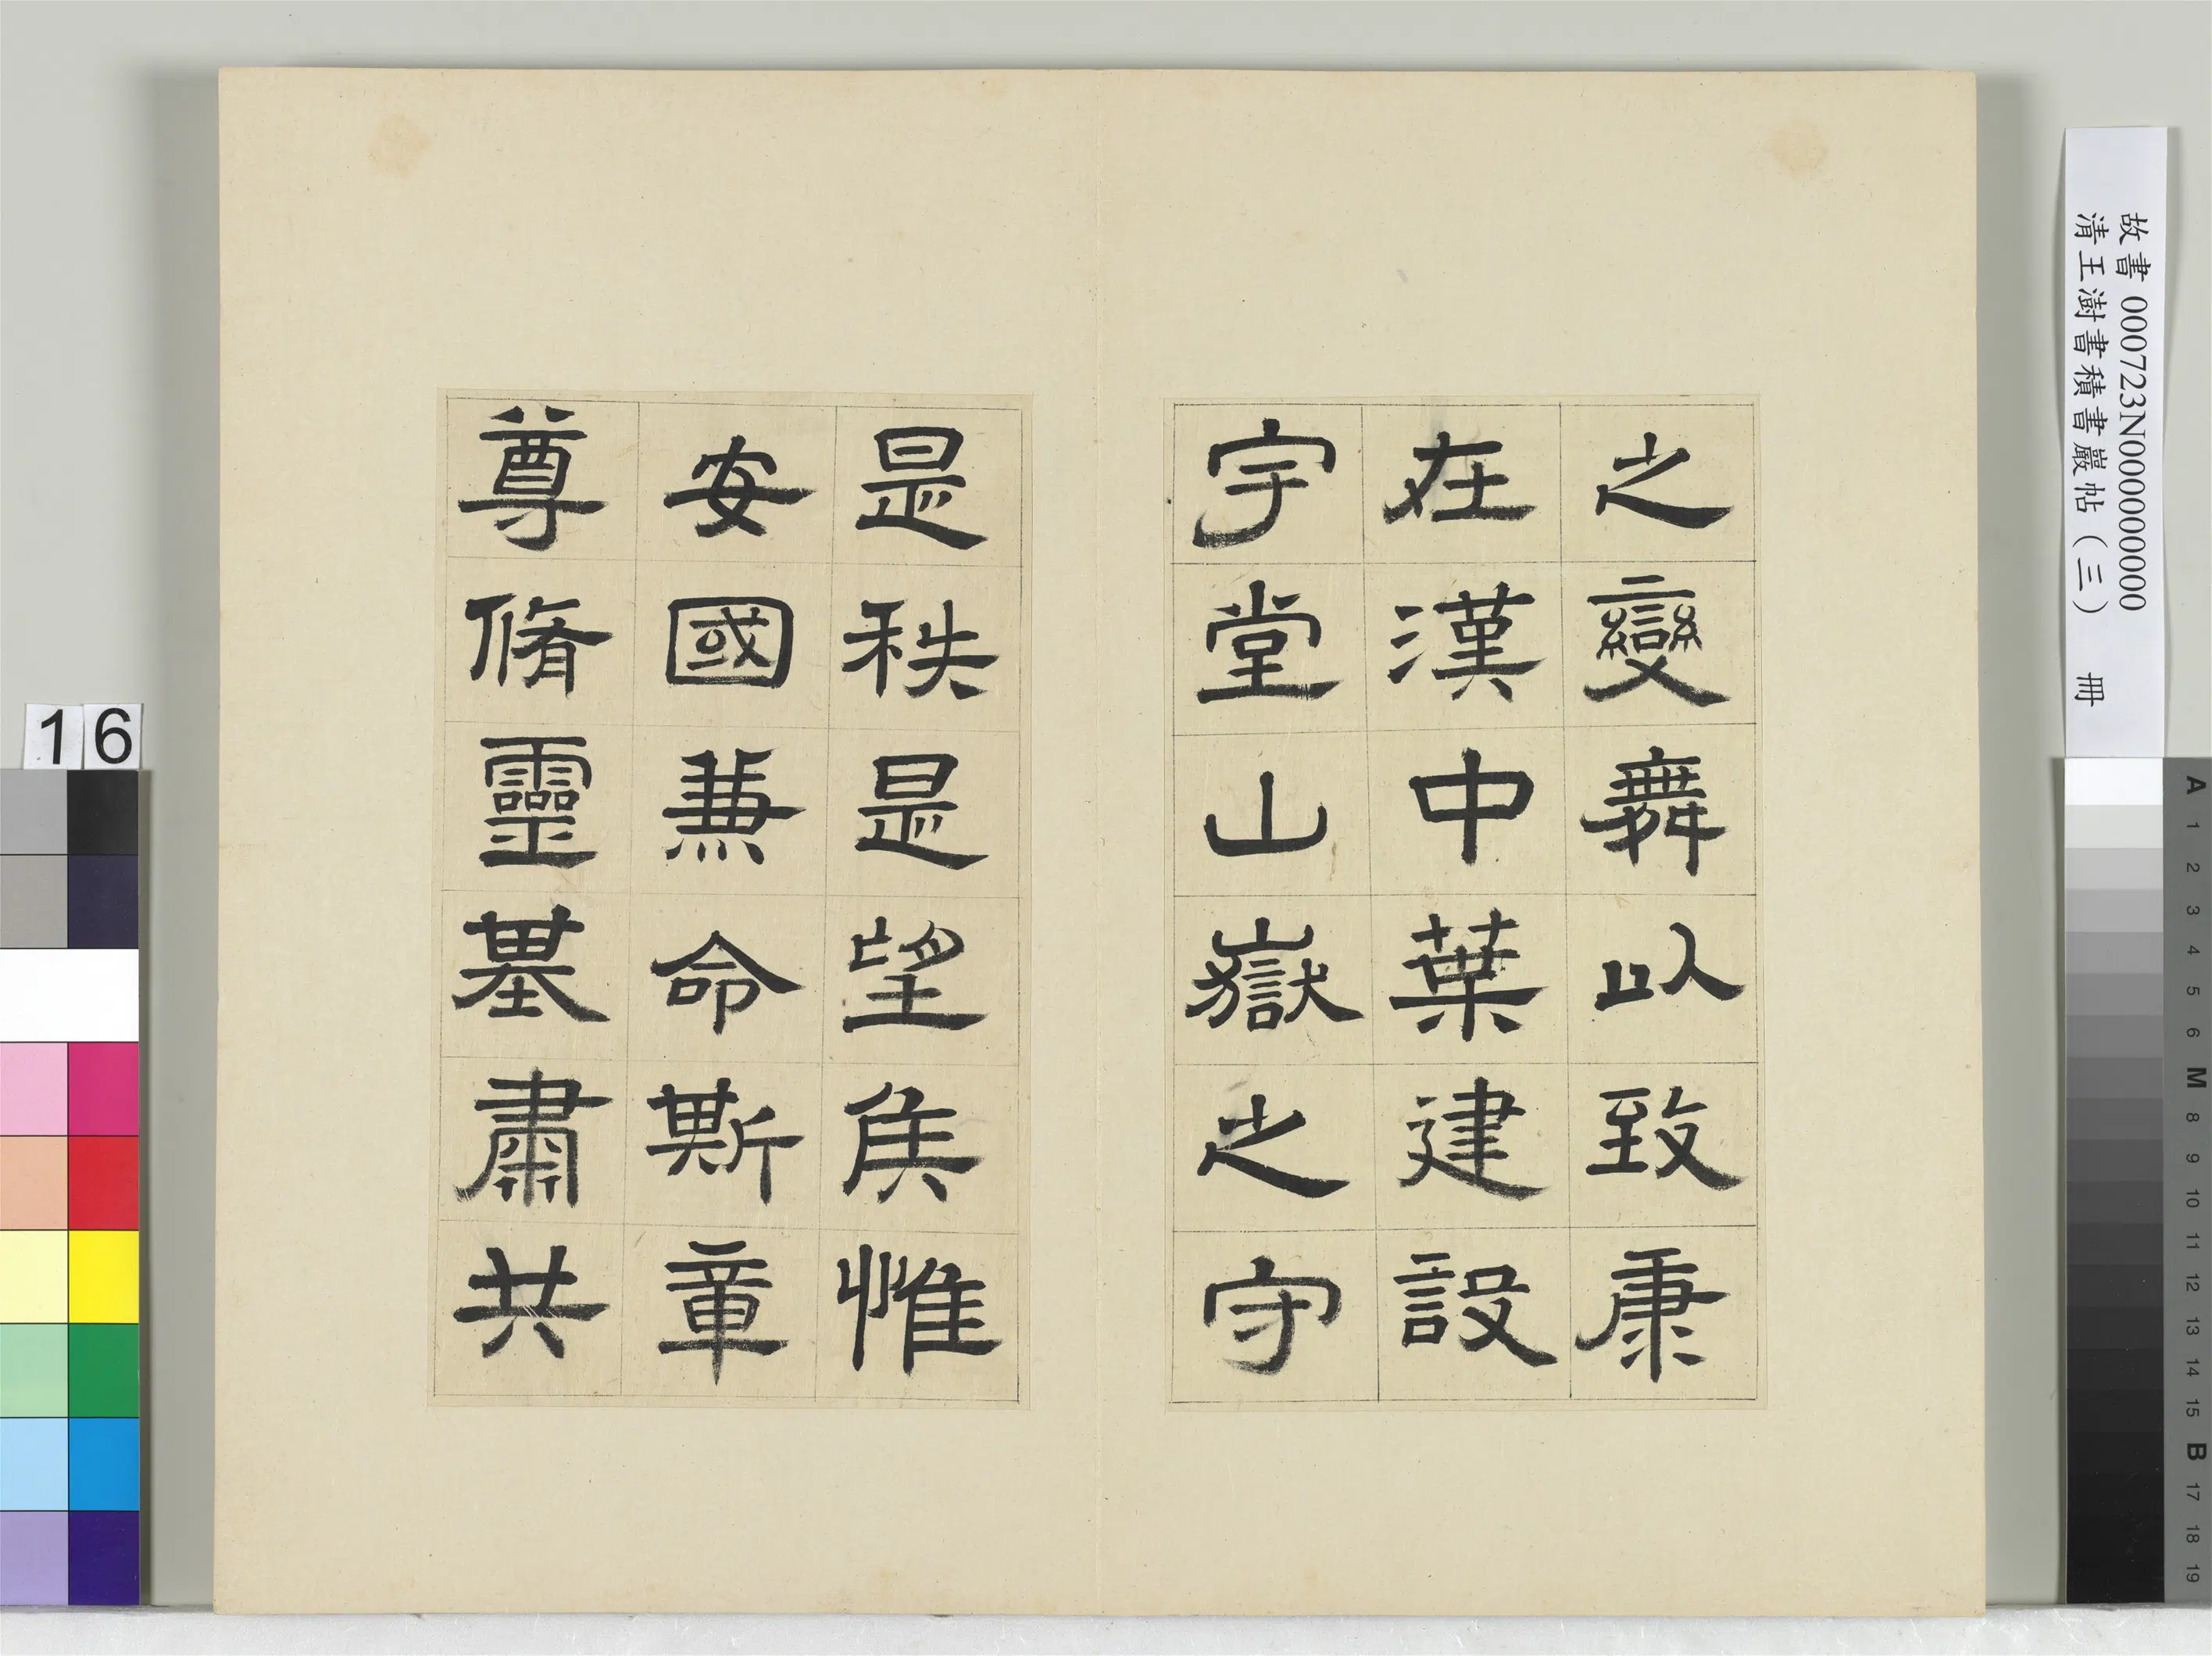 之變舞以致康
在漢中葉建設
宇堂山嶽之守
是秩是望侯惟
安國兼命斯章
尊脩靈基肅共
故書 000723N000000000
清王澍書積書巖帖（三） 冊
16
A 1 2 3 4 5 6 M 8 9 10 11 12 13 14 15 B 17 18 19